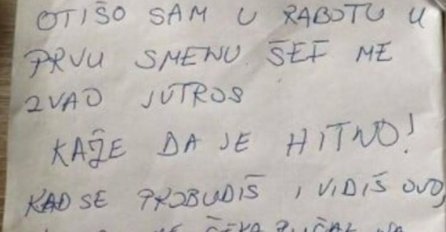 OTIŠO SAM U RABOTU U
PRVU SMENU ŠEF ME
ZVAO JUTROS
KAŽE DA JE HITNO!
KAD SE PROBUDIŠ I VIDIŠ OVO,